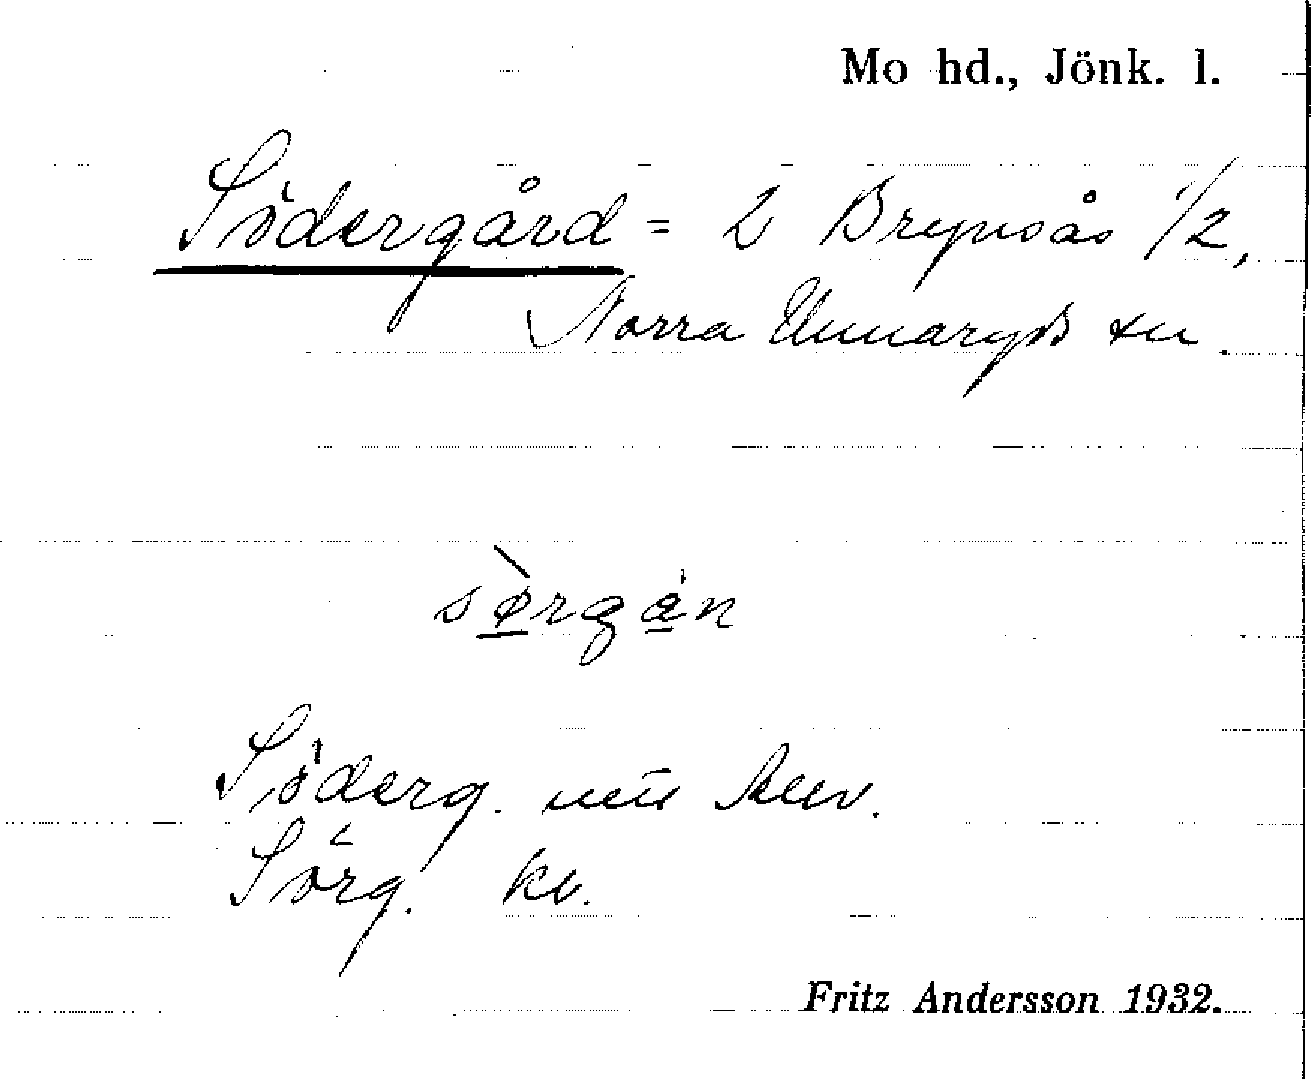 Mo hd., Jönk. l.
Södergård = 2 Brynsås 1/2,
Norra Unnaryds sn.
sørgán
Söderg. mtl
Sörg. kv.
Fritz Andersson 1932.